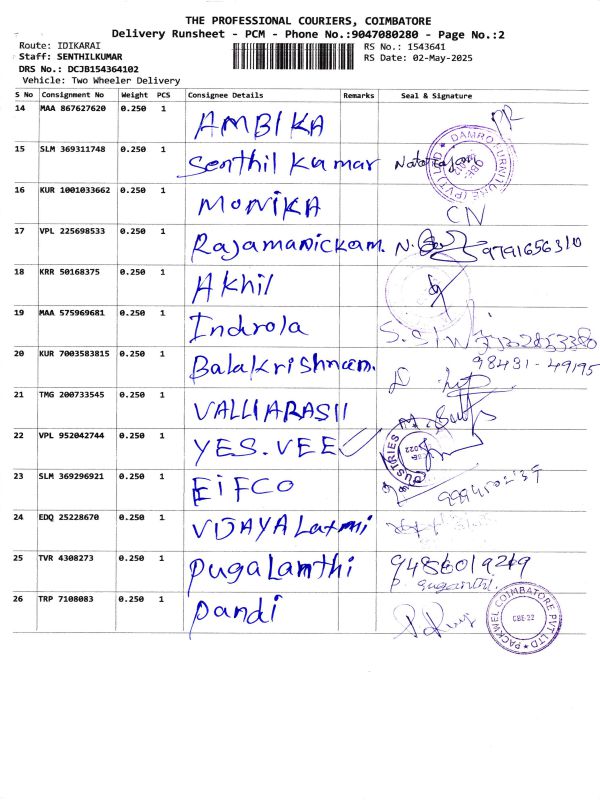 THE PROFESSIONAL COURIERS, COIMBATORE
Delivery Runsheet - PCM - Phone No.:9047080280 - Page No.:2
Route: IDIKARAI RS No.: 1543641
Staff: SENTHILKUMAR RS Date: 02-May-2025
DRS No.: DCJB154364102
Vehicle: Two Wheeler Delivery
S No Consignment No Weight PCS Consignee Details Remarks Seal & Signature
14 MAA 867627620 0.250 1 AMBIKA
15 SLM 369311748 0.250 1 Senthil Kumar
DAMRO FURNITURE (PVT) LTD
16 KUR 1001033662 0.250 1 MONIKA CN
17 VPL 225698533 0.250 1 Rajamanickam. 9791656310
18 KRR 50168375 0.250 1 Akhil
19 MAA 575969681 0.250 1 Indrola
20 KUR 7003583815 0.250 1 Balakrishnam. 98431-49195
21 TMG 200733545 0.250 1 VALLIARASU
22 VPL 952042744 0.250 1 YES.VEE
23 SLM 369296921 0.250 1 EIFCO
24 EDQ 25228670 0.250 1 VIJAYA Laxmi
25 TVR 4308273 0.250 1 Pugalanthi 9486019249
P. Suganthi
26 TRP 7108083 0.250 1 Pandi
PACKWEL COIMBATORE PVT LTD
CBE-22